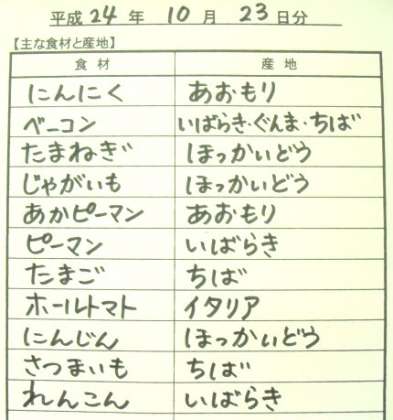 平成 24 年 10 月 23 日分
【主な食材と産地】
食材 産地
にんにく あおもり
ベーコン いばらき・ぐんま・ちば
たまねぎ ほっかいどう
じゃがいも ほっかいどう
あかピーマン あおもり
ピーマン いばらき
たまご ちば
ホールトマト イタリア
にんじん ほっかいどう
さつまいも ちば
れんこん いばらき